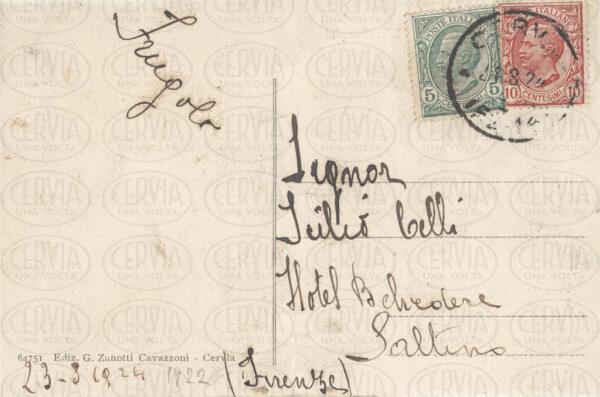 Frugolo
POSTE ITALIANE
5 CENTESIMI 5
ITALIANE
10 CENTESIMI 10
CERV
Signor
Tullio Celli
Hotel Belvedere
Saltino
(Firenze)
64751 Ediz. G. Zanotti Cavazzoni - Cervia
23-8 1924 1922
CERVIA
UNA VOLTA